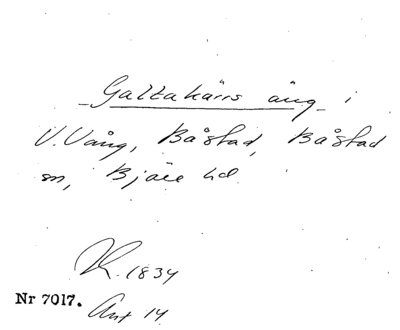 Galtakärrs äng i
V. Vång, Båstad, Båstad
sn, Bjäre hd
K. 1834
Nr 7017. Ant 14